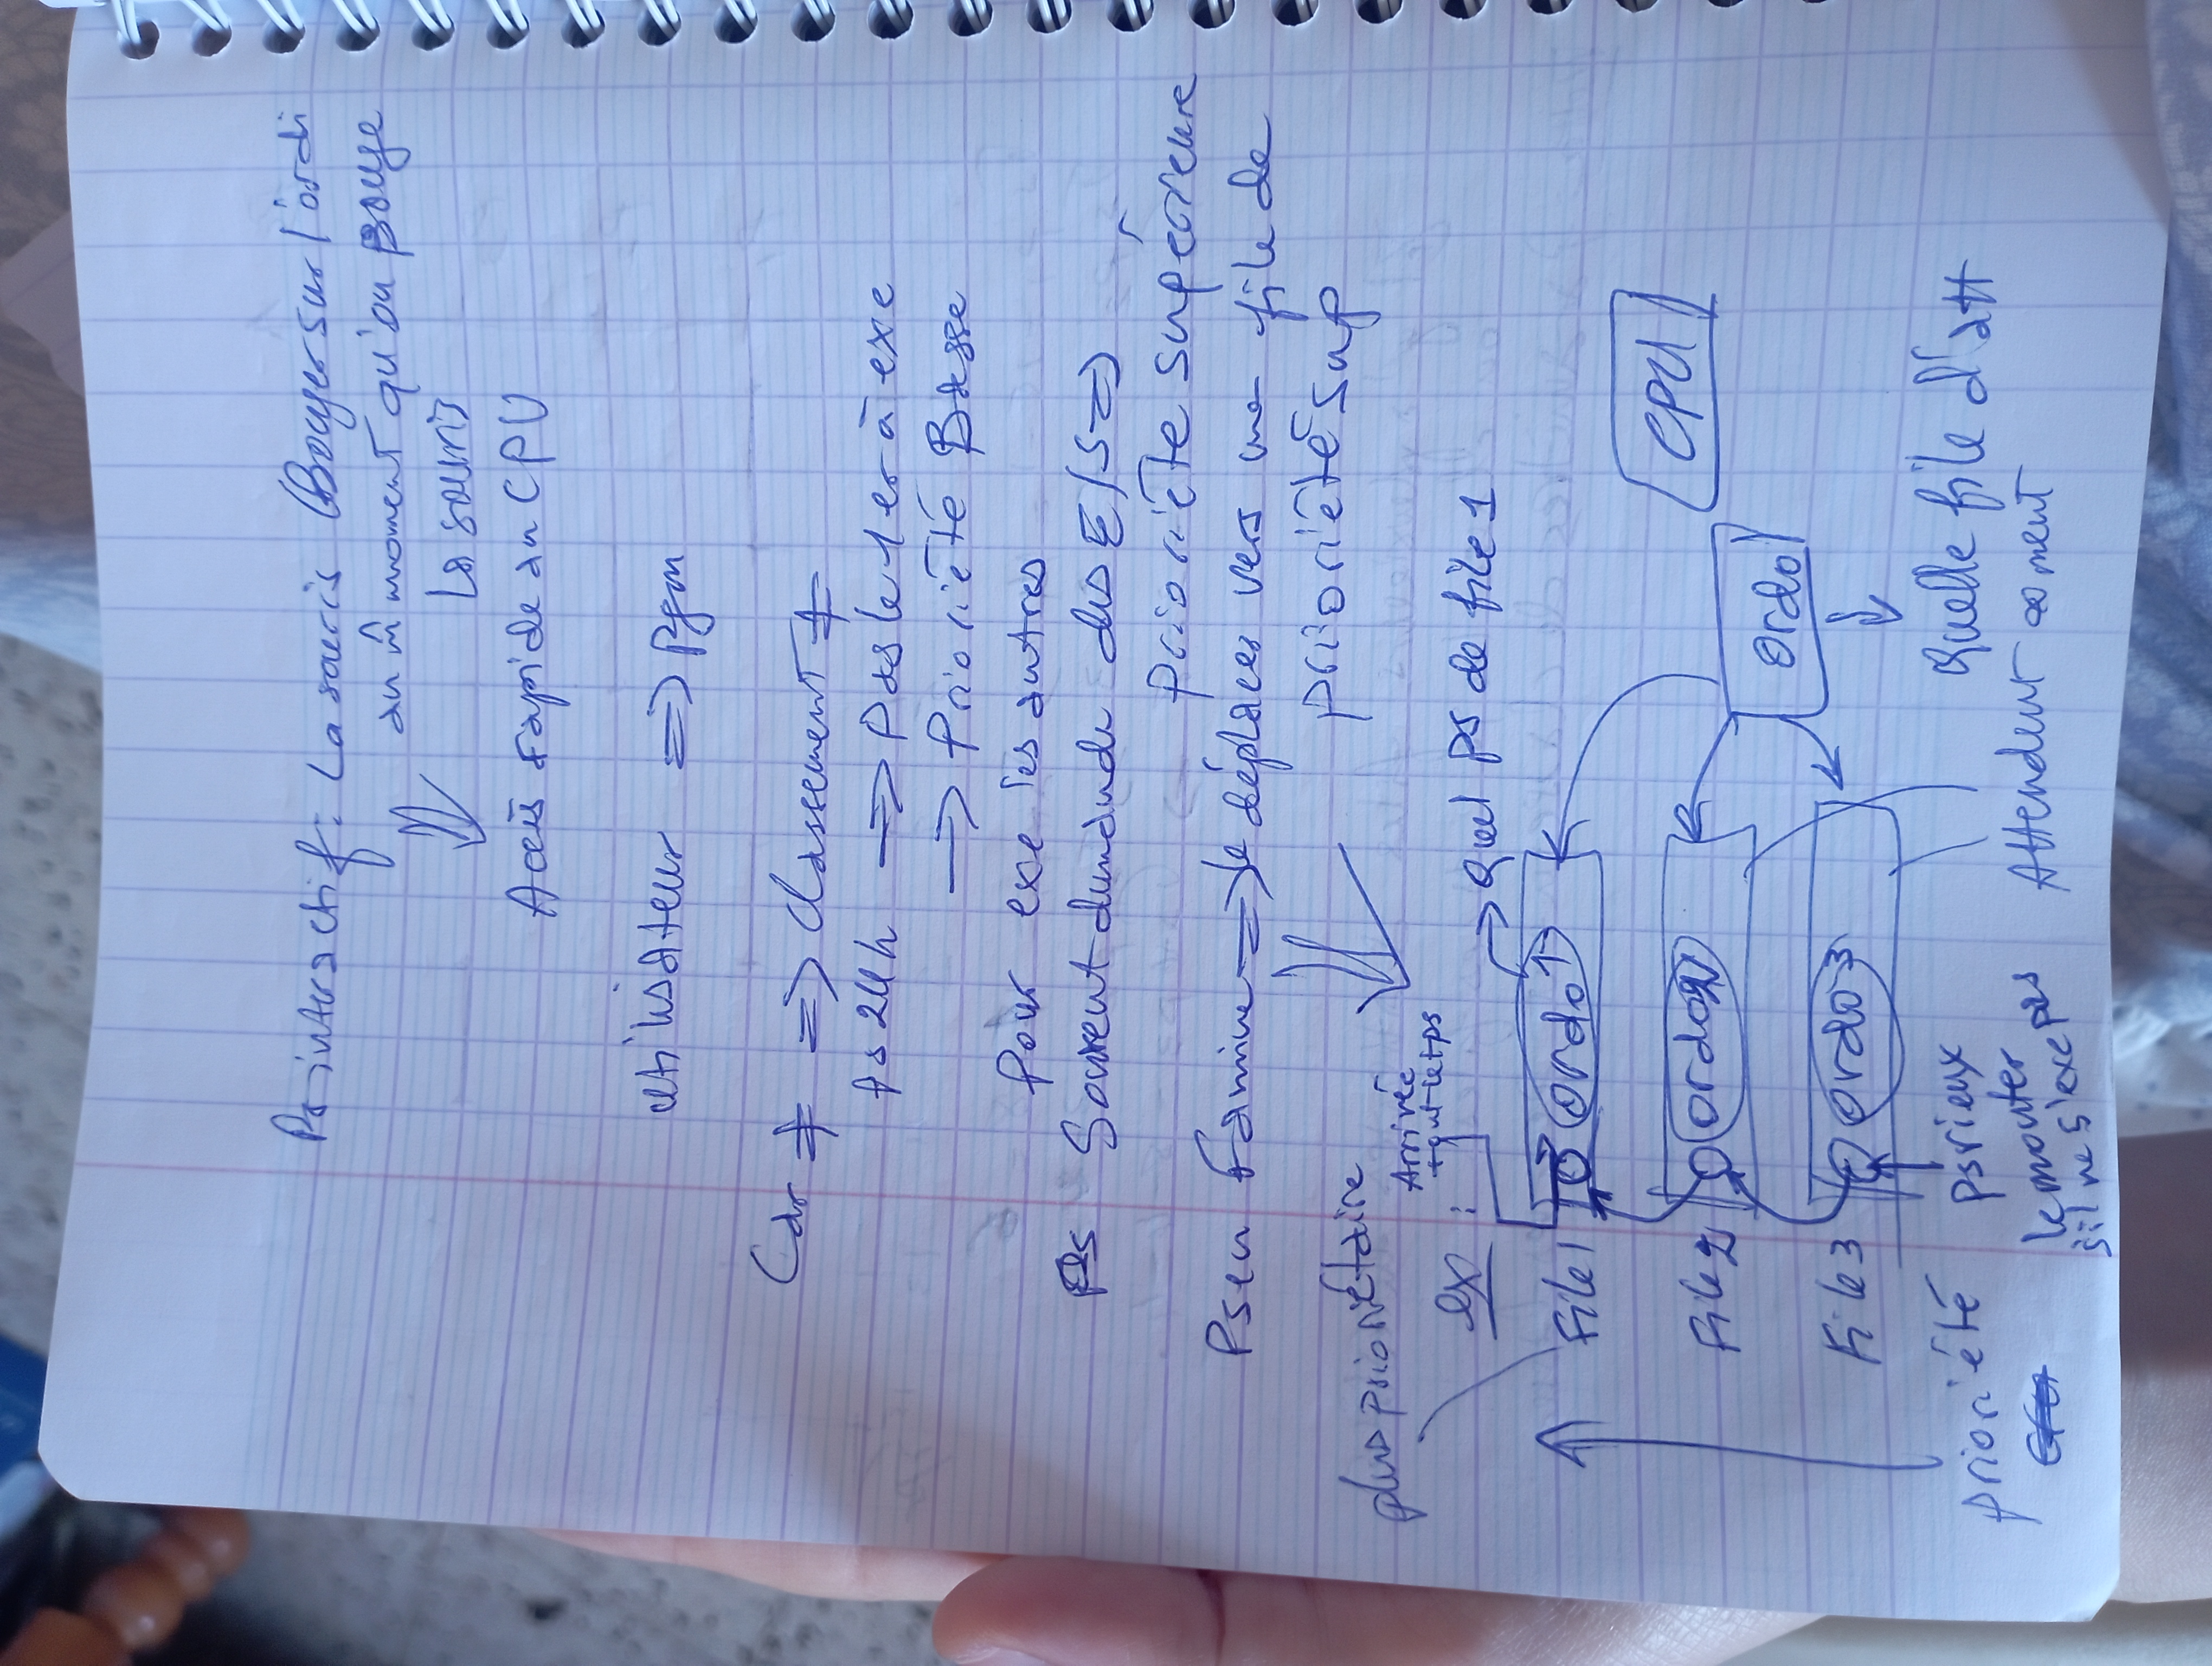 Ps interactif : La souris (Bouger sur l'ordi
au m̂ moment qu'on Bouge
la souris
Accès rapide au CPU
utilisateur => pgm
Car ≠ => Classement ≠
Ps 24h => Pas le 1er à exe
=> Prioriété Basse
Pour exe les autres
Ps Souvent demande des E/S =>
Priorièté supérieure
Ps en famine => le déplacer vers une file de
priorièté sup
plus prioriétaire
Arrivée
tout le tps
ex :
Quel ps de file 1
File 1 ordo 1
CPU
File 2 ordo 2
ordo
File 3 ordo 3
Quelle file d'att
priorièté
ps vieux
le monter
s'il ne s'exe pas
Attendent ∞ment